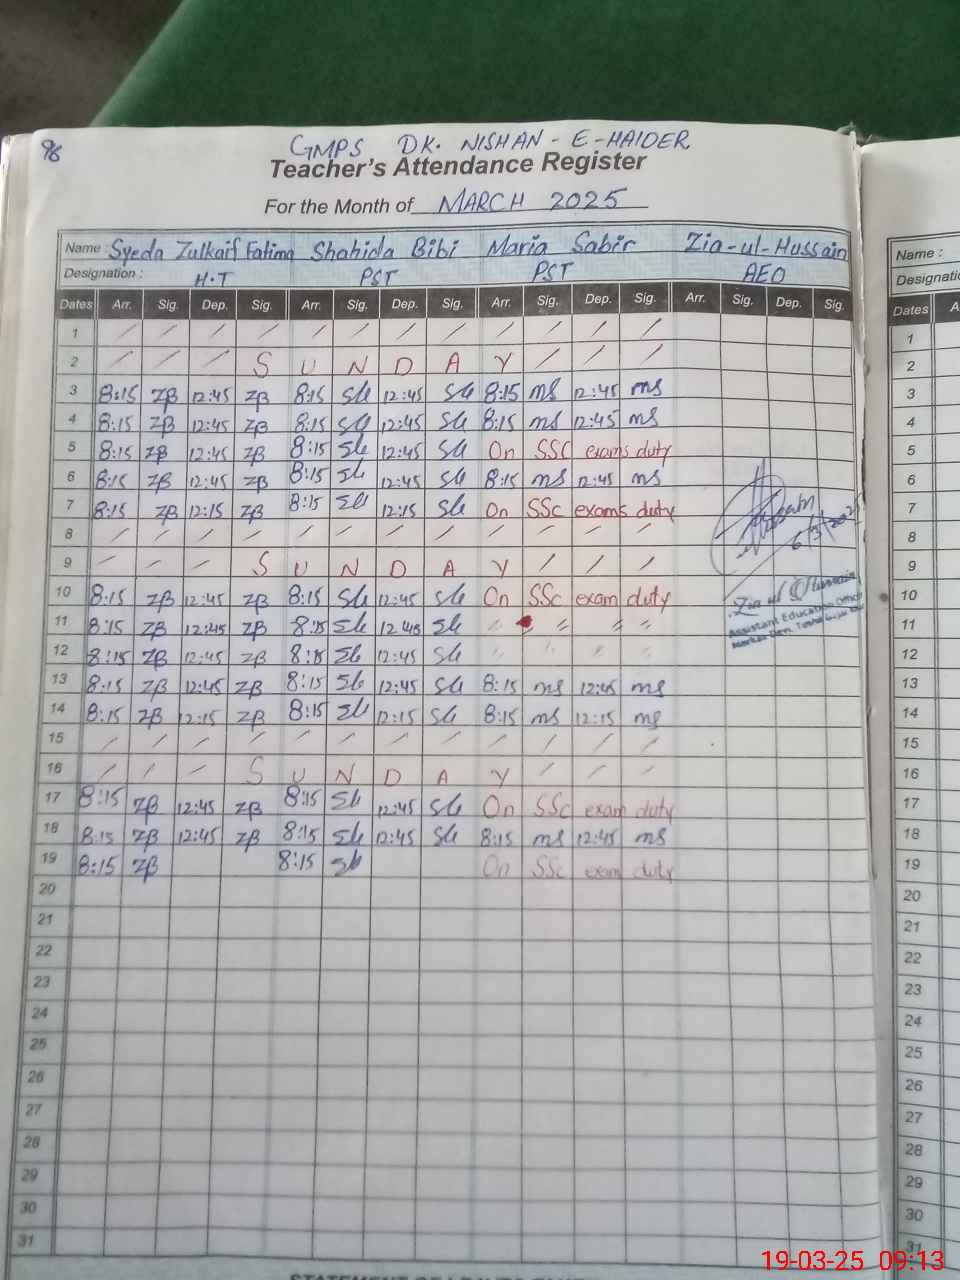 96
GMPS DK. NISHAN-E-HAIDER
Teacher's Attendance Register
For the Month of MARCH 2025
Name : Syeda Zulkaif Fatima Shahida Bibi Maria Sabir Zia-ul-Hussain
Designation : H.T PST PST AEO
Dates Arr. Sig. Dep. Sig. Arr. Sig. Dep. Sig. Arr. Sig. Dep. Sig. Arr. Sig. Dep. Sig.
1 / / / / / / / / / / / /
2 / / / S U N D A Y / / /
3 8:15 ZB 12:45 ZB 8:15 Sh 12:45 Sh 8:15 ms 12:45 ms
4 8:15 ZB 12:45 ZB 8:15 Sh 12:45 Sh 8:15 ms 12:45 ms
5 8:15 ZB 12:45 ZB 8:15 Sh 12:45 Sh On SSC exams duty
6 8:15 ZB 12:45 ZB 8:15 Sh 12:45 Sh 8:15 ms 12:45 ms
7 8:15 ZB 12:15 ZB 8:15 Sh 12:15 Sh On SSc exams duty
8 / / / / / / / / / / / /
9 / / / S U N D A Y / / /
10 8:15 ZB 12:45 ZB 8:15 Sh 12:45 Sh On SSc exam duty
11 8:15 ZB 12:45 ZB 8:15 Sh 12:45 Sh " " " "
12 8:15 ZB 12:45 ZB 8:15 Sh 12:45 Sh " " " "
13 8:15 ZB 12:45 ZB 8:15 Sh 12:45 Sh 8:15 ms 12:45 ms
14 8:15 ZB 12:15 ZB 8:15 Sh 12:15 Sh 8:15 ms 12:15 ms
15 / / / / / / / / / / / /
16 / / / S U N D A Y / / /
17 8:15 ZB 12:45 ZB 8:15 Sh 12:45 Sh On SSc exam duty
18 8:15 ZB 12:45 ZB 8:15 Sh 12:45 Sh 8:15 ms 12:45 ms
19 8:15 ZB 8:15 Sh On SSc exam duty
20
21
22
23
24
25
26
27
28
29
30
31
Zia ul Hussain
Assistant Education Officer
Markaz
Name :
Dates
1
2
3
4
5
6
7
8
9
10
11
12
13
14
15
16
17
18
19
20
21
22
23
24
25
26
27
28
29
30
31
19-03-25 09:13